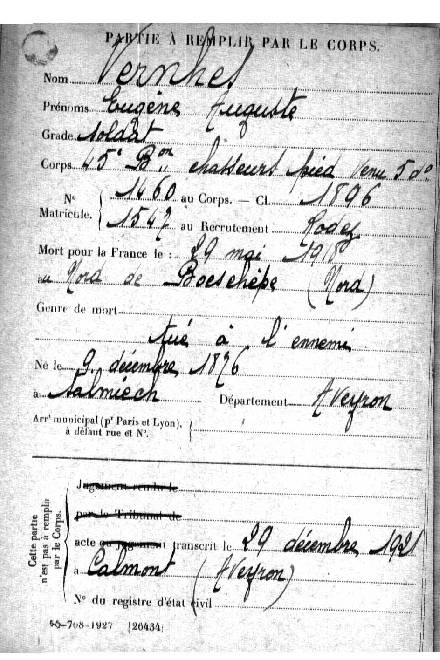 PARTIE À REMPLIR PAR LE CORPS.
Nom Vernhes
Prénoms Eugène Auguste
Grade Soldat
Corps 45e Bon chasseurs pied venu 5 do
N° 1460 au Corps. — Cl. 1896
Matricule. 1547 au Recrutement Rodez
Mort pour la France le : 29 mai 1918
au Nord de Boeschèpe (Nord)
Genre de mort
tué à l'ennemi
Né le 9 décembre 1876
à Salmiech Département Aveyron
Arrt municipal (pr Paris et Lyon),
à défaut rue et N°.
Cette partie
n'est pas à remplir
par le Corps.
Jugement rendu le
par le Tribunal de
acte ou jugement transcrit le 29 décembre 1921
à Calmont (Aveyron)
N° du registre d'état civil
55-708-1927 [26434]